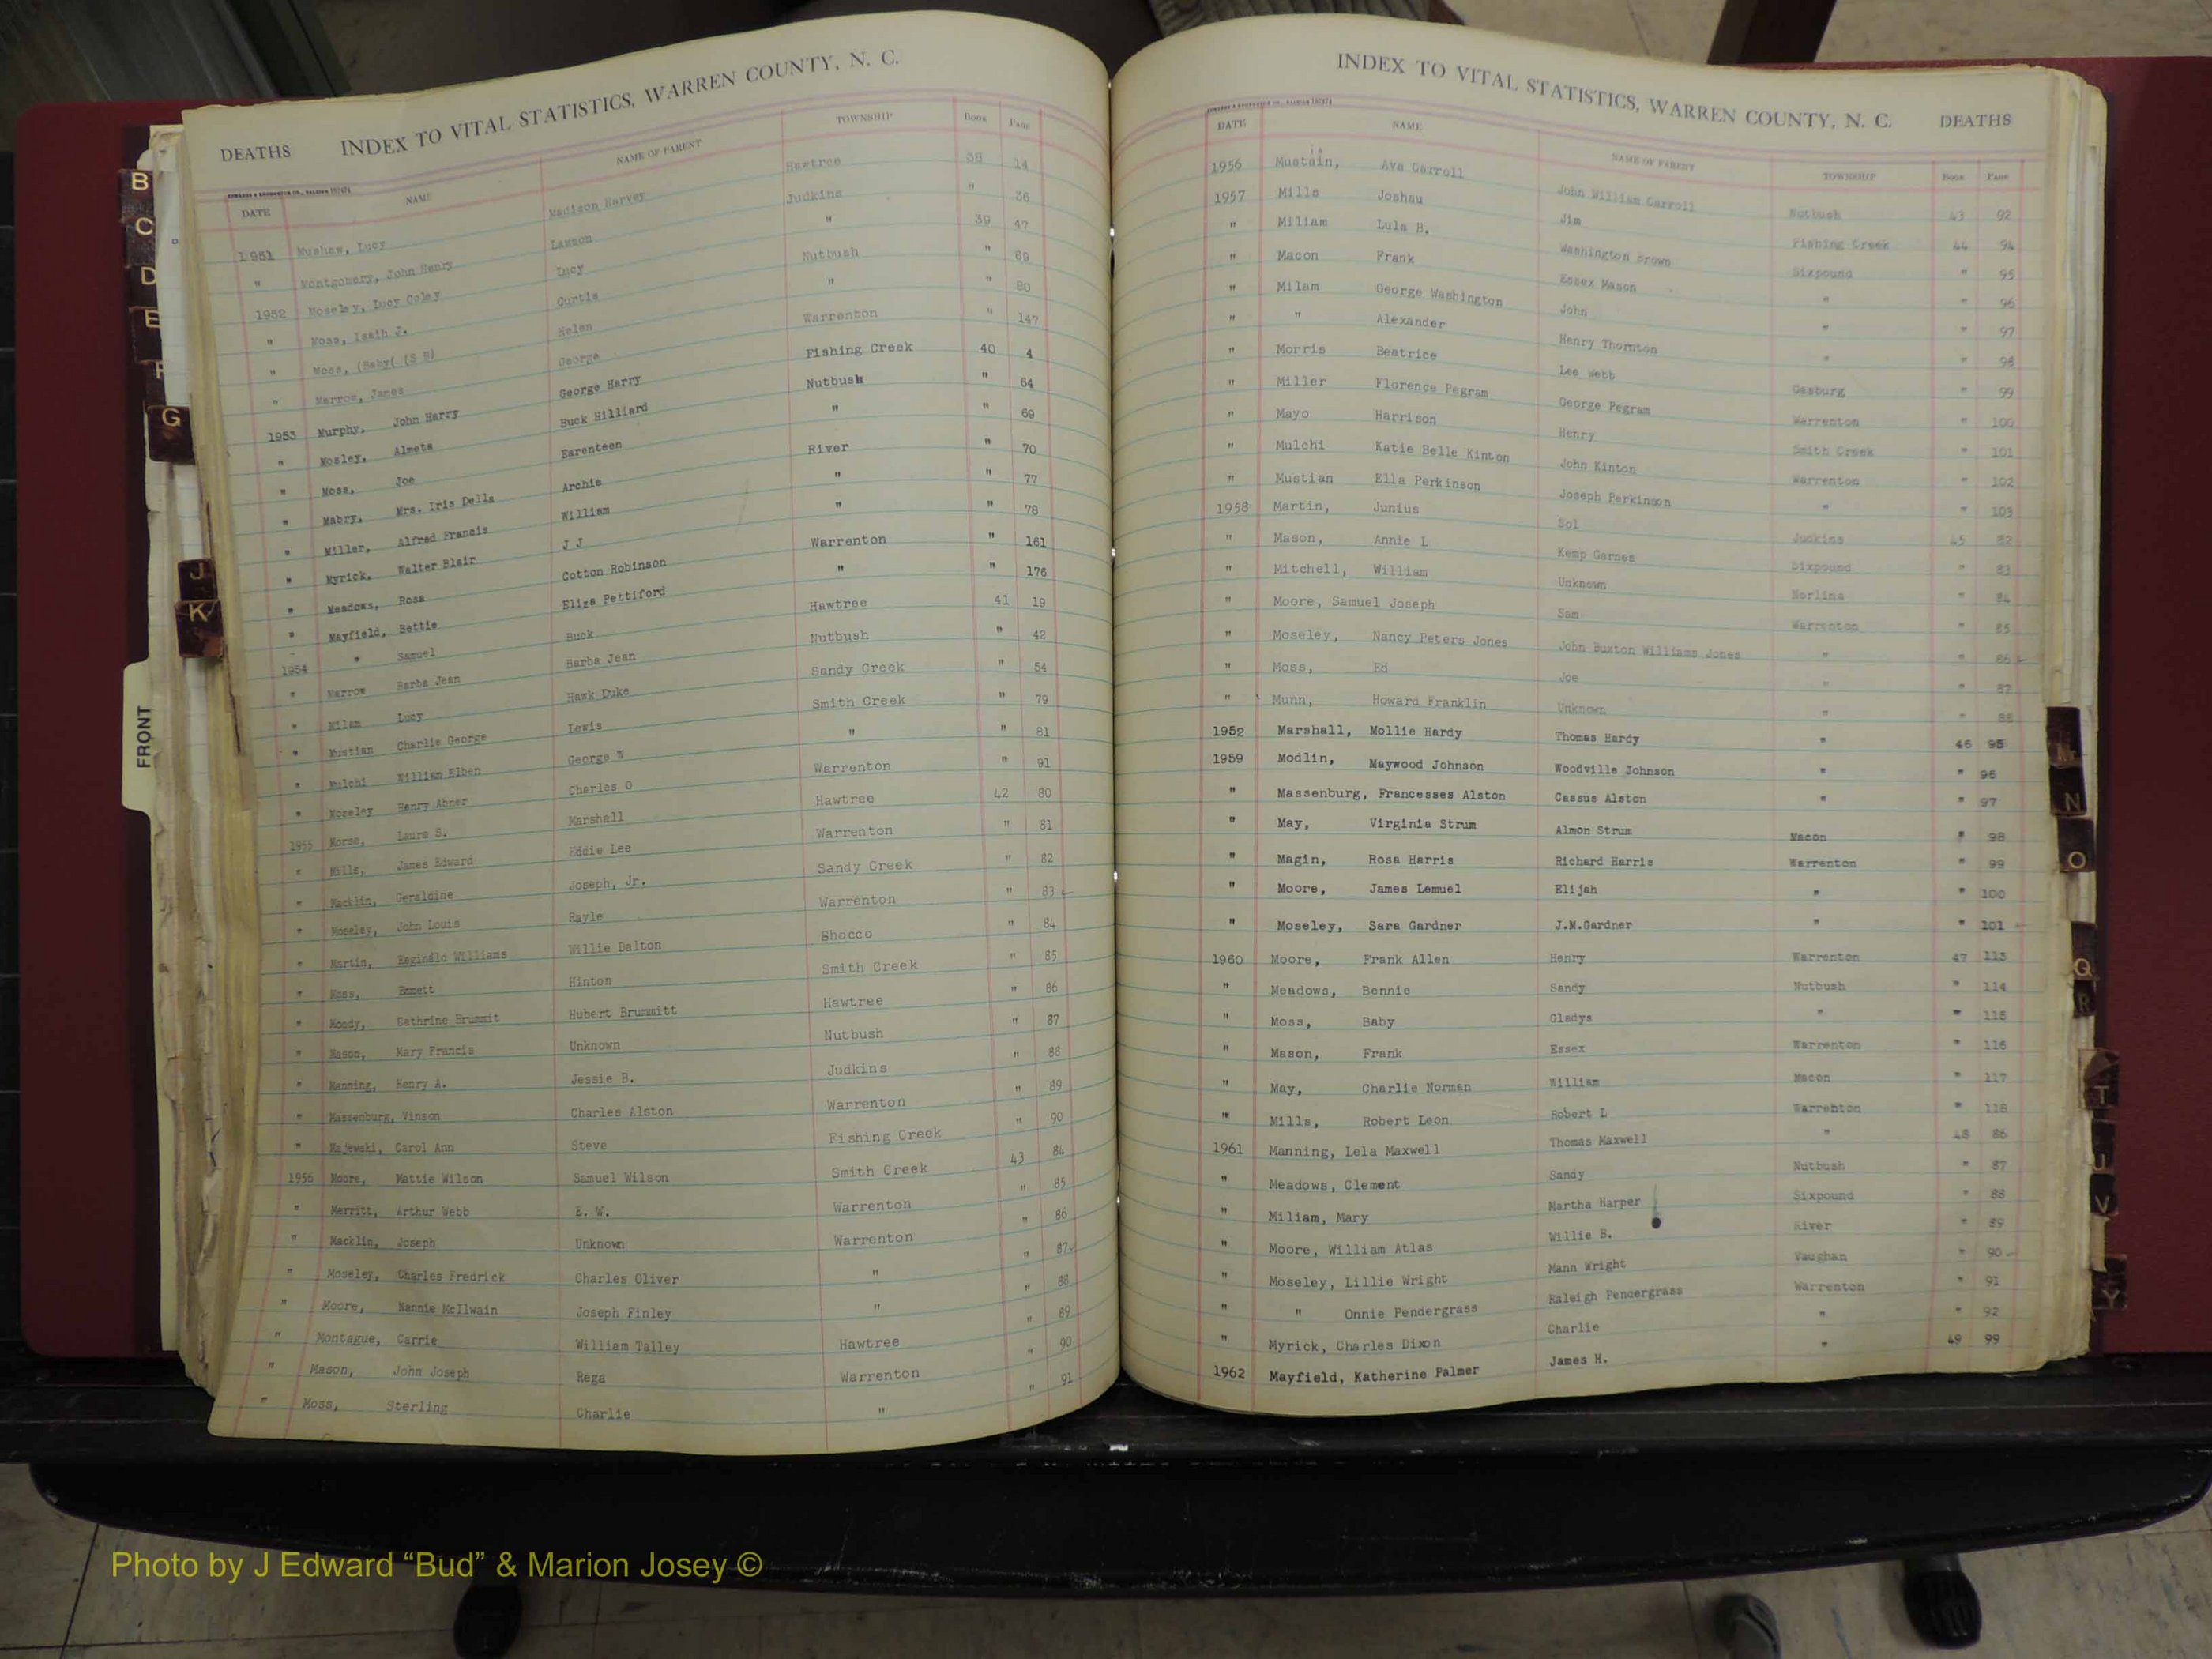 INDEX TO VITAL STATISTICS, WARREN COUNTY, N. C.
DEATHS
DATE NAME NAME OF PARENT TOWNSHIP Book Page
1951 Mushaw, Lucy Madison Harvey Hawtree 38 14
" Montgomery, John Henry Lawson Judkins " 36
1952 Moseley, Lucy Coley Lucy " 39 47
" Moss, Isaih J. Curtis Nutbush " 69
" Moss, (Baby( (S B) Helen " " 80
" Marrow, James George Warrenton " 147
1953 Murphy, John Harry George Harry Fishing Creek 40 4
" Mosley, Almeta Buck Hilliard Nutbush " 64
" Moss, Joe Earenteen " " 69
" Mabry, Mrs. Iris Della Archie River " 70
" Miller, Alfred Francis William " " 77
" Myrick, Walter Blair J J " " 78
" Meadows, Rosa Cotton Robinson Warrenton " 161
" Mayfield, Bettie Eliza Pettiford " " 176
1954 " Samuel Buck Hawtree 41 19
" Marrow Barba Jean Barba Jean Nutbush " 42
" Milam Lucy Hawk Duke Sandy Creek " 54
" Mustian Charlie George Lewis Smith Creek " 79
" Mulchi William Elben George W " " 81
" Moseley Henry Abner Charles O Warrenton " 91
1955 Morse, Laura S. Marshall Hawtree 42 80
" Mills, James Edward Eddie Lee Warrenton " 81
" Macklin, Geraldine Joseph, Jr. Sandy Creek " 82
" Moseley, John Louis Rayle Warrenton " 83
" Martin, Reginald Williams Willie Dalton Shocco " 84
" Moss, Emmett Hinton Smith Creek " 85
" Moody, Cathrine Brummit Hubert Brummitt Hawtree " 86
" Mason, Mary Francis Unknown Nutbush " 87
" Manning, Henry A. Jessie B. Judkins " 88
" Massenburg, Vinson Charles Alston Warrenton " 89
" Majewski, Carol Ann Steve Fishing Creek " 90
1956 Moore, Mattie Wilson Samuel Wilson Smith Creek 43 84
" Merritt, Arthur Webb E. W. Warrenton " 85
" Macklin, Joseph Unknown Warrenton " 86
" Moseley, Charles Fredrick Charles Oliver " " 87
" Moore, Nannie McIlwain Joseph Finley " " 88
" Montague, Carrie William Talley Hawtree " 89
" Mason, John Joseph Rega Warrenton " 90
" Moss, Sterling Charlie " " 91
INDEX TO VITAL STATISTICS, WARREN COUNTY, N. C. DEATHS
DATE NAME NAME OF PARENT TOWNSHIP Book Page
1956 Mustain, Ava Carroll John William Carroll Nutbush 43 92
1957 Mills Joshau Jim Fishing Creek 44 94
" Miliam Lula B. Washington Brown Sixpound " 95
" Macon Frank Essex Mason " " 96
" Milam George Washington John " " 97
" " Alexander Henry Thornton " " 98
" Morris Beatrice Lee Webb Gasburg " 99
" Miller Florence Pegram George Pegram Warrenton " 100
" Mayo Harrison Henry Smith Creek " 101
" Mulchi Katie Belle Kinton John Kinton Warrenton " 102
" Mustian Ella Perkinson Joseph Perkinson " " 103
1958 Martin, Junius Sol Judkins 45 82
" Mason, Annie L Kemp Garnes Sixpound " 83
" Mitchell, William Unknown Norlina " 84
" Moore, Samuel Joseph Sam Warrenton " 85
" Moseley, Nancy Peters Jones John Buxton Williams Jones " " 86
" Moss, Ed Joe " " 87
" Munn, Howard Franklin Unknown " " 88
1952 Marshall, Mollie Hardy Thomas Hardy " 46 95
1959 Modlin, Maywood Johnson Woodville Johnson " " 96
" Massenburg, Francesses Alston Cassus Alston " " 97
" May, Virginia Strum Almon Strum Macon " 98
" Magin, Rosa Harris Richard Harris Warrenton " 99
" Moore, James Lemuel Elijah " " 100
" Moseley, Sara Gardner J.M.Gardner " " 101
1960 Moore, Frank Allen Henry Warrenton 47 113
" Meadows, Bennie Sandy Nutbush " 114
" Moss, Baby Gladys " " 115
" Mason, Frank Essex Warrenton " 116
" May, Charlie Norman William Macon " 117
" Mills, Robert Leon Robert L Warrenton " 118
1961 Manning, Lela Maxwell Thomas Maxwell " 48 86
" Meadows, Clement Sandy Nutbush " 87
" Miliam, Mary Martha Harper Sixpound " 88
" Moore, William Atlas Willie B. River " 89
" Moseley, Lillie Wright Mann Wright Vaughan " 90
" " Onnie Pendergrass Raleigh Pendergrass Warrenton " 91
" Myrick, Charles Dixon Charlie " " 92
1962 Mayfield, Katherine Palmer James H. " 49 99
B
C
D
E
G
J
K
FRONT
N
O
Q
R
T
U
V
Y
Photo by J Edward “Bud” & Marion Josey ©